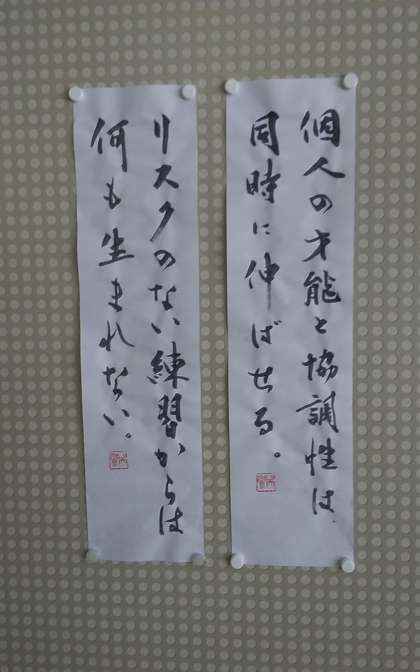 個人の才能と協調性は
同時に伸ばせる。
リスクのない練習からは
何も生まれない。